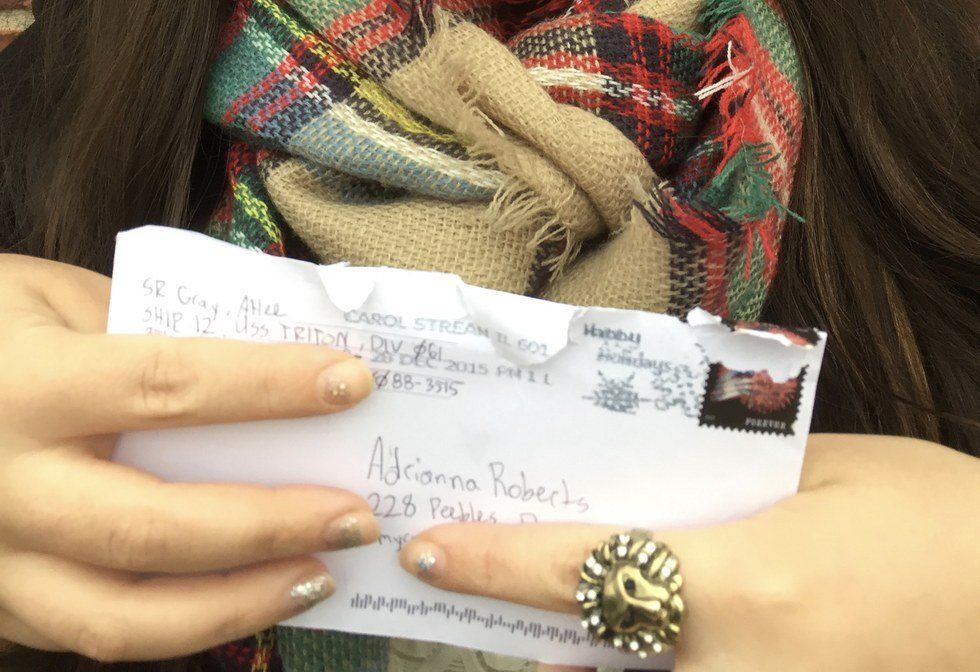 SR Gray, Atlee
SHIP 12, USS TRITON, DIV Ø81
CAROL STREAM IL 601
28 DEC 2015 PM 1 L
Ø88-3515
Happy
Holidays
FOREVER
Adrianna Roberts
228 Peebles